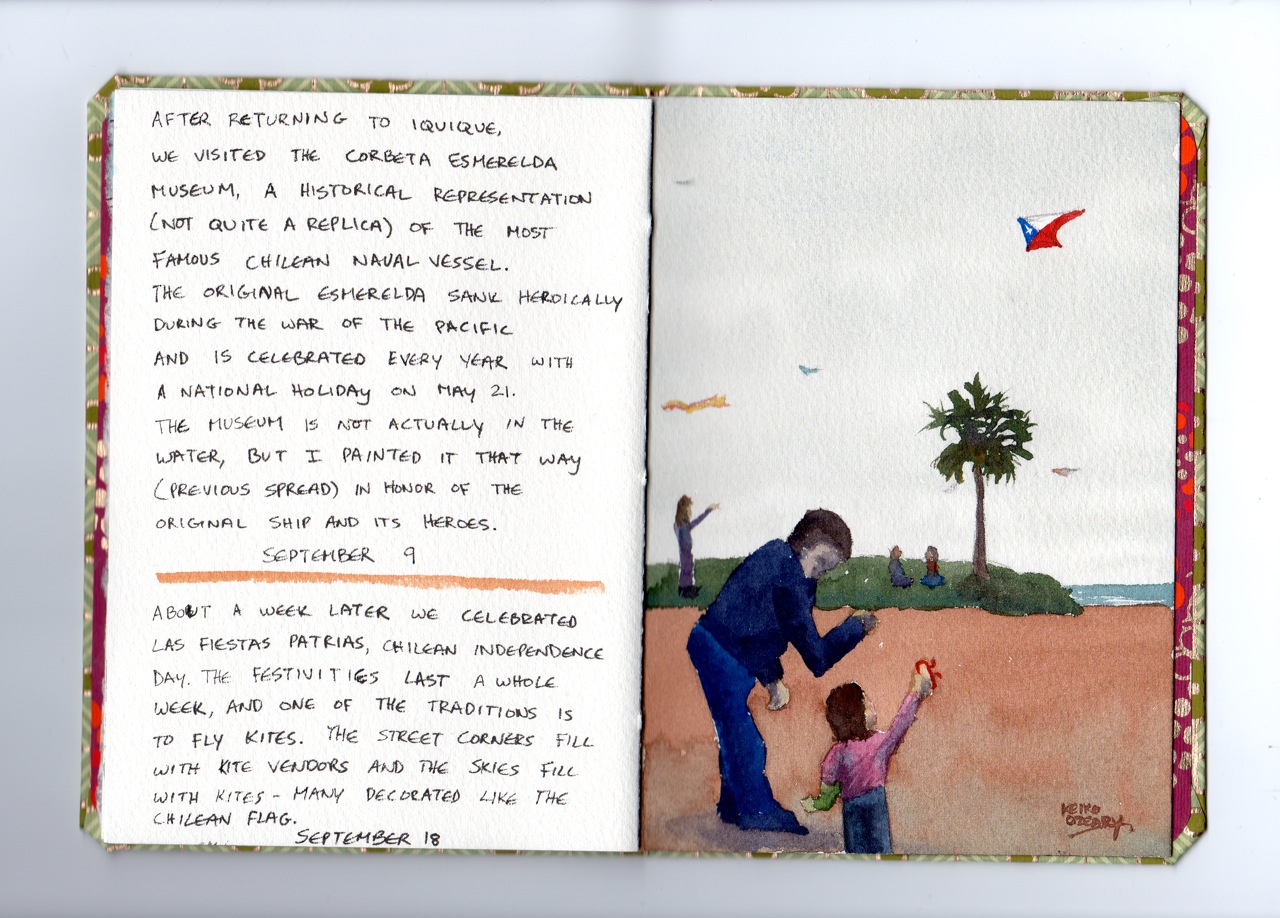 AFTER RETURNING TO IQUIQUE,
WE VISITED THE CORBETA ESMERELDA
MUSEUM, A HISTORICAL REPRESENTATION
(NOT QUITE A REPLICA) OF THE MOST
FAMOUS CHILEAN NAVAL VESSEL.
THE ORIGINAL ESMERELDA SANK HEROICALLY
DURING THE WAR OF THE PACIFIC
AND IS CELEBRATED EVERY YEAR WITH
A NATIONAL HOLIDAY ON MAY 21.
THE MUSEUM IS NOT ACTUALLY IN THE
WATER, BUT I PAINTED IT THAT WAY
(PREVIOUS SPREAD) IN HONOR OF THE
ORIGINAL SHIP AND ITS HEROES.
SEPTEMBER 9
ABOUT A WEEK LATER WE CELEBRATED
LAS FIESTAS PATRIAS, CHILEAN INDEPENDENCE
DAY. THE FESTIVITIES LAST A WHOLE
WEEK, AND ONE OF THE TRADITIONS IS
TO FLY KITES. THE STREET CORNERS FILL
WITH KITE VENDORS AND THE SKIES FILL
WITH KITES - MANY DECORATED LIKE THE
CHILEAN FLAG.
SEPTEMBER 18
KEIKO